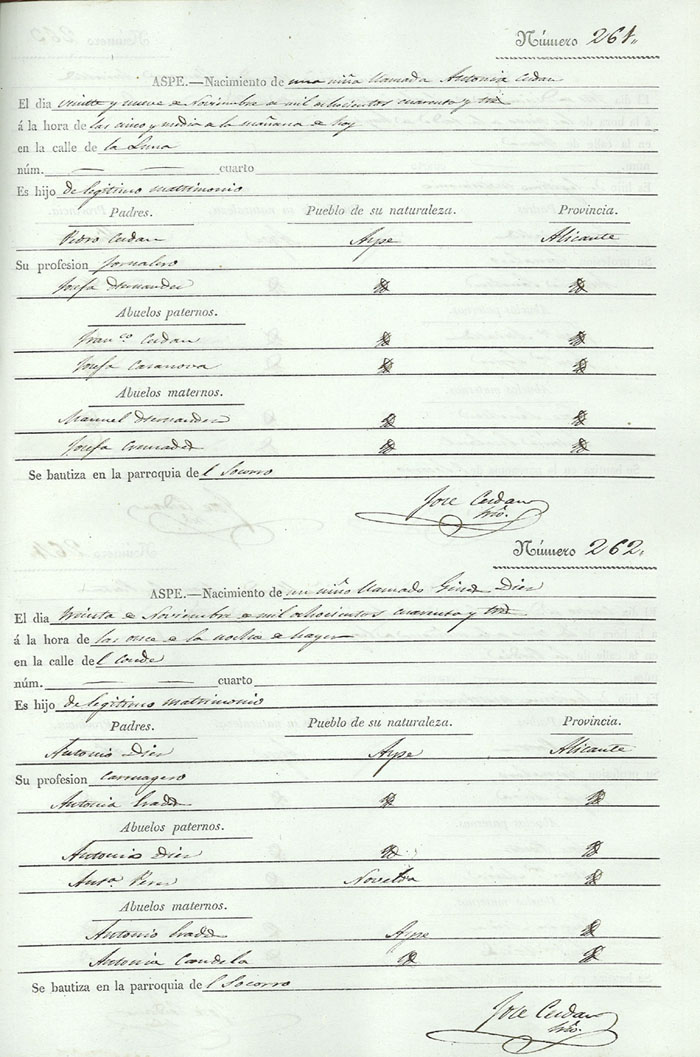 Número 261.
ASPE.—Nacimiento de una niña llamada Antonia Cerdan
El dia veinte y nueve de Noviembre de mil ochocientos cuarenta y tres
á la hora de las cinco y media de la mañana de hoy
en la calle de la Luna
núm. — — cuarto
Es hijo de legitimo matrimonio
Padres. Pueblo de su naturaleza. Provincia.
Pedro Cerdan Aspe Alicante
Su profesion Jornalero
Josefa Hernandez
Abuelos paternos.
Franco Cerdan
Josefa Casanova
Abuelos maternos.
Manuel Hernandez
Josefa
Se bautiza en la parroquia del Socorro
Jose Cerdan
Srio.
Número 262.
ASPE.—Nacimiento de un niño llamado Gines Diez
El dia treinta de Noviembre de mil ochocientos cuarenta y tres
á la hora de las once de la noche de hayer
en la calle del Conde
núm. — — cuarto
Es hijo de legitimo matrimonio
Padres. Pueblo de su naturaleza. Provincia.
Antonio Diez Aspe Alicante
Su profesion Carruagero
Antonia
Abuelos paternos.
Antonio Diez
Anta. Perez Novelda
Abuelos maternos.
Antonio Aspe
Antonia Candela
Se bautiza en la parroquia del Socorro
Jose Cerdan
Srio.